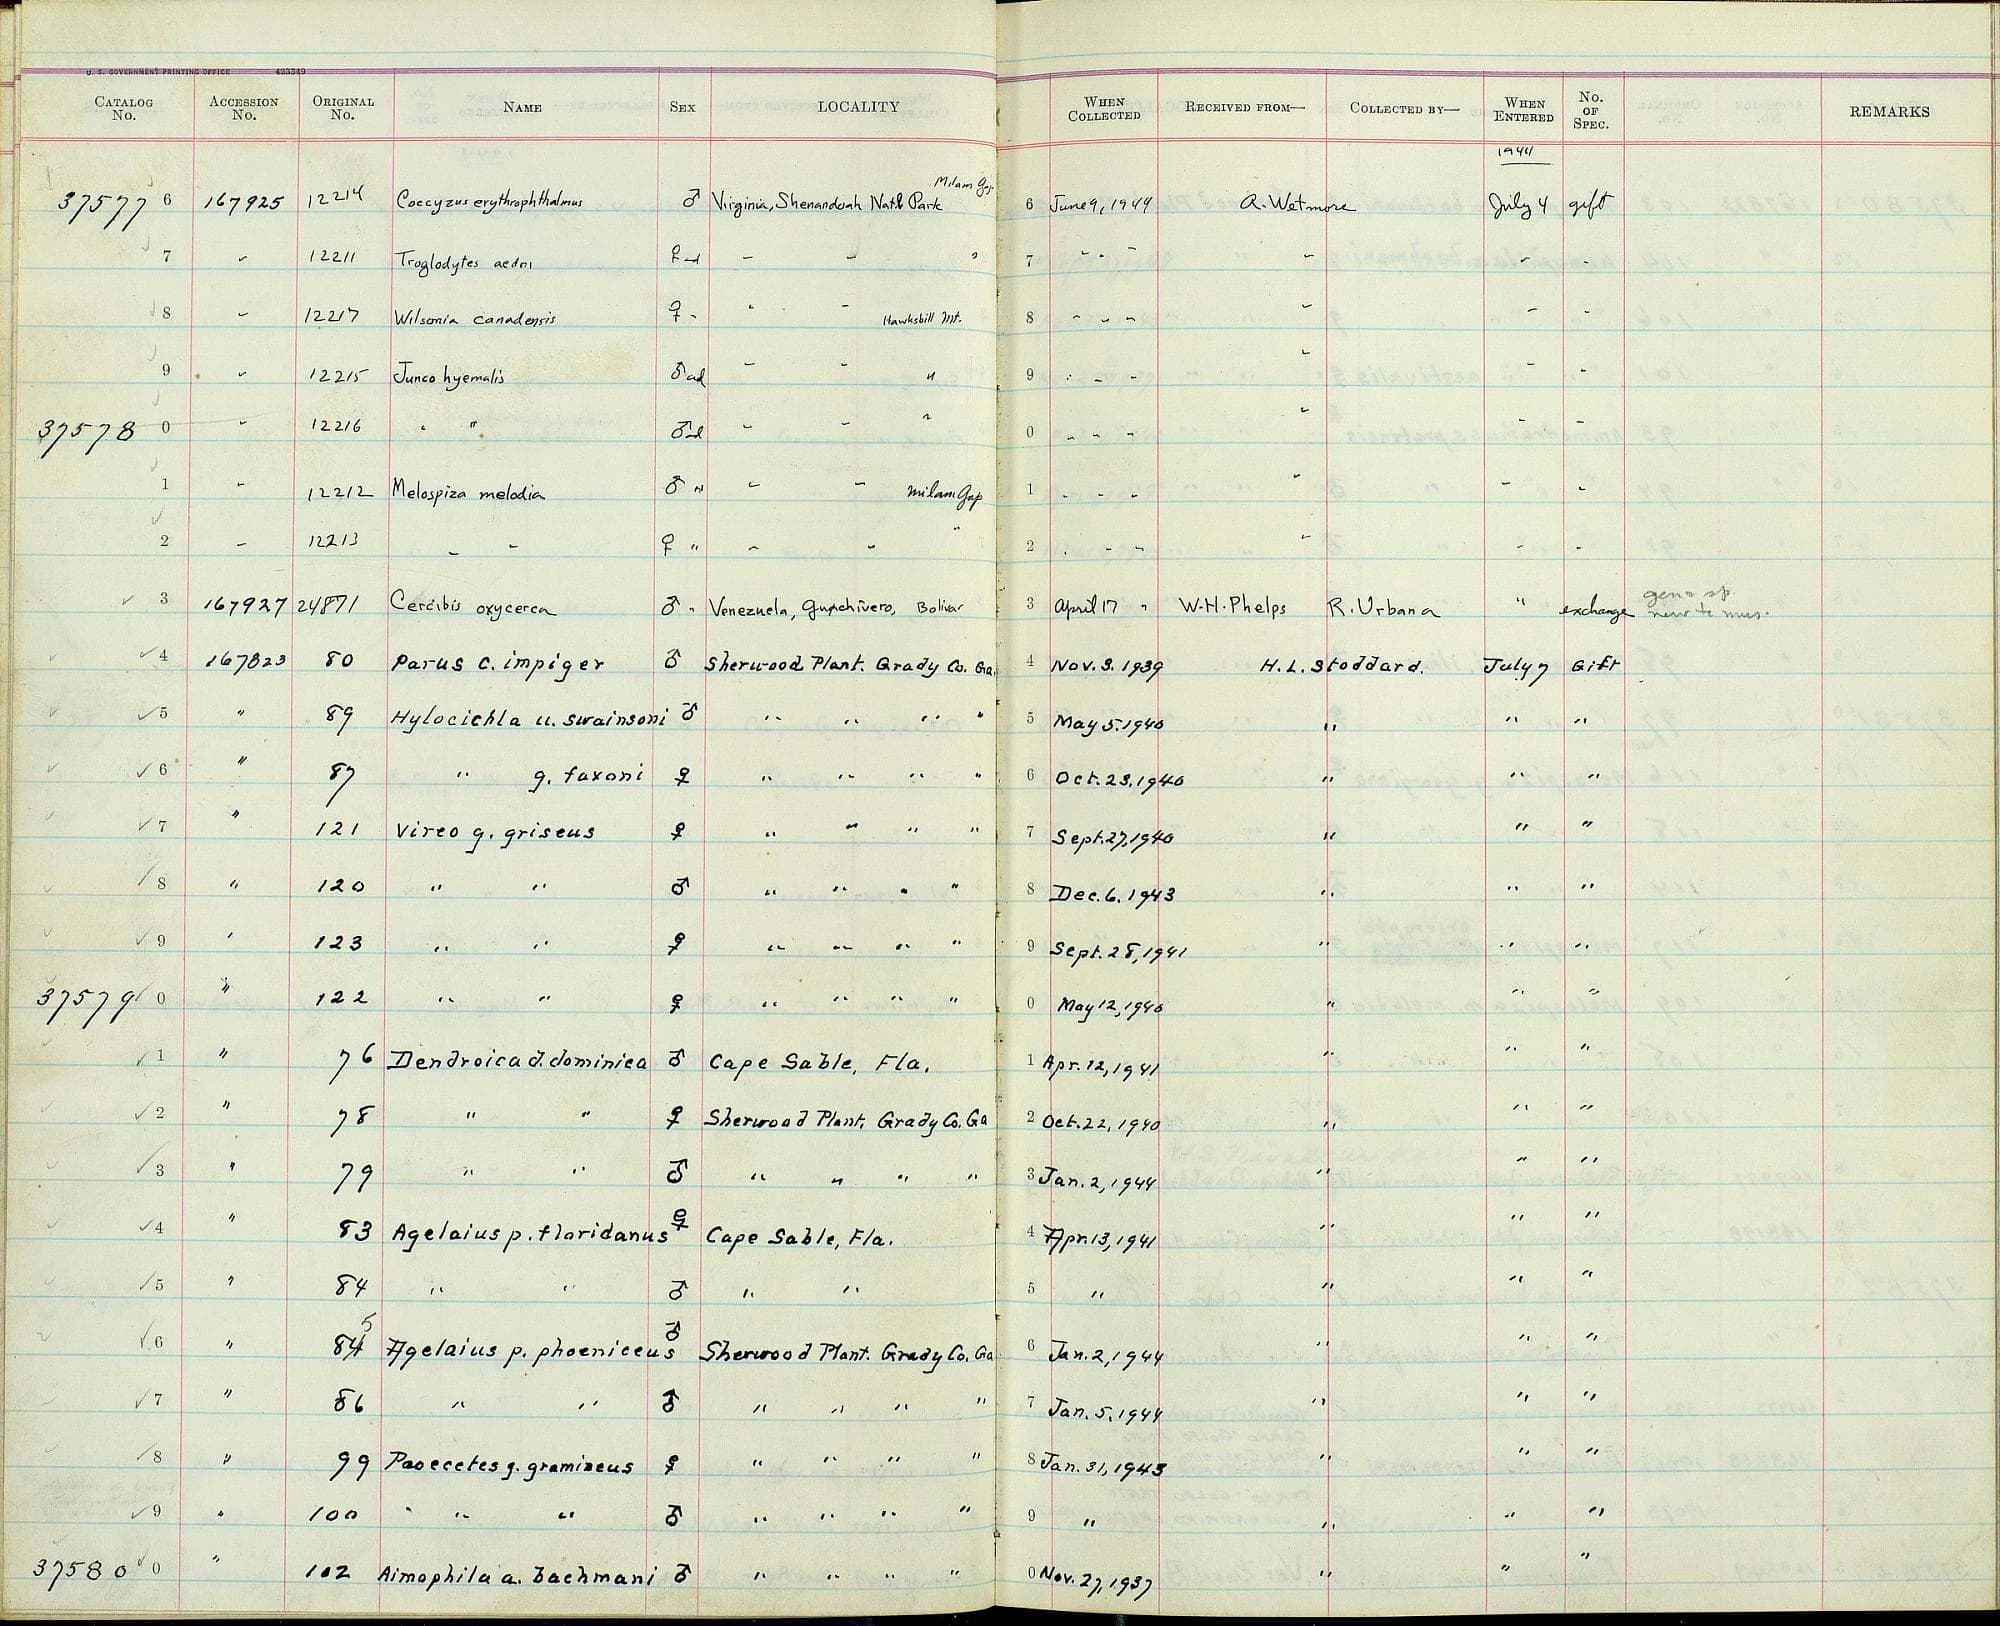 U. S. GOVERNMENT PRINTING OFFICE 423349
CATALOG No. ACCESSION No. ORIGINAL No. NAME SEX LOCALITY WHEN COLLECTED RECEIVED FROM— COLLECTED BY— WHEN ENTERED No. OF SPEC. REMARKS
1944
Milam Gap
37577 6 167925 12214 Coccyzus erythrophthalmus ♂ Virginia, Shenandoah Natl. Park 6 June 9, 1944 A. Wetmore July 4 gift
7 " 12211 Troglodytes aedon ♀ ad " " " 7 " " " " " "
8 " 12217 Wilsonia canadensis ♀ " " " Hawksbill Mt. 8 " " " " " "
9 " 12215 Junco hyemalis ♂ ad " " " 9 " " " " " "
37578 0 " 12216 " " ♂ ad " " " 0 " " " " " "
1 " 12212 Melospiza melodia ♂ " " " Milam Gap 1 " " " " " "
2 " 12213 " " ♀ " " " " 2 " " " " " "
3 167927 24871 Cercibis oxycerca ♂ " Venezuela, Guachivero, Bolivar 3 April 17 " W.H. Phelps R. Urbana " exchange gen. & sp. new to mus.
4 167823 80 Parus c. impiger ♂ Sherwood Plant. Grady Co. Ga. 4 Nov. 3. 1939 H. L. Stoddard. July 7 Gift
5 " 89 Hylocichla u. swainsoni ♂ " " " " 5 May 5. 1940 " " "
6 " 87 " g. faxoni ♀ " " " " 6 Oct. 23. 1940 " " "
7 " 121 Vireo g. griseus ♀ " " " " 7 Sept. 27, 1940 " " "
8 " 120 " " ♂ " " " " 8 Dec. 6. 1943 " " "
9 " 123 " " ♀ " " " " 9 Sept. 28, 1941 " " "
37579 0 " 122 " " ♀ " " " " 0 May 12, 1940 " " "
1 " 76 Dendroica d. dominica ♂ Cape Sable, Fla. 1 Apr. 12, 1941 " " "
2 " 78 " " ♀ Sherwood Plant. Grady Co. Ga 2 Oct. 22, 1940 " " "
3 " 79 " " ♂ " " " " 3 Jan. 2, 1944 " " "
4 " 83 Agelaius p. floridanus ♀ Cape Sable, Fla. 4 Apr. 13, 1941 " " "
5 " 84 " " ♂ " " 5 " " " "
6 " 845 Agelaius p. phoeniceus ♂ Sherwood Plant. Grady Co. Ga 6 Jan. 2, 1944 " " "
7 " 86 " " ♂ " " " " 7 Jan. 5. 1944 " " "
8 " 99 Pooecetes g. gramineus ♀ " " " " 8 Jan. 31, 1943 " " "
9 " 100 " " " ♂ " " " " 9 " " " "
37580 0 " 102 Aimophila a. bachmani ♂ " " " " 0 Nov. 27, 1937 " " "